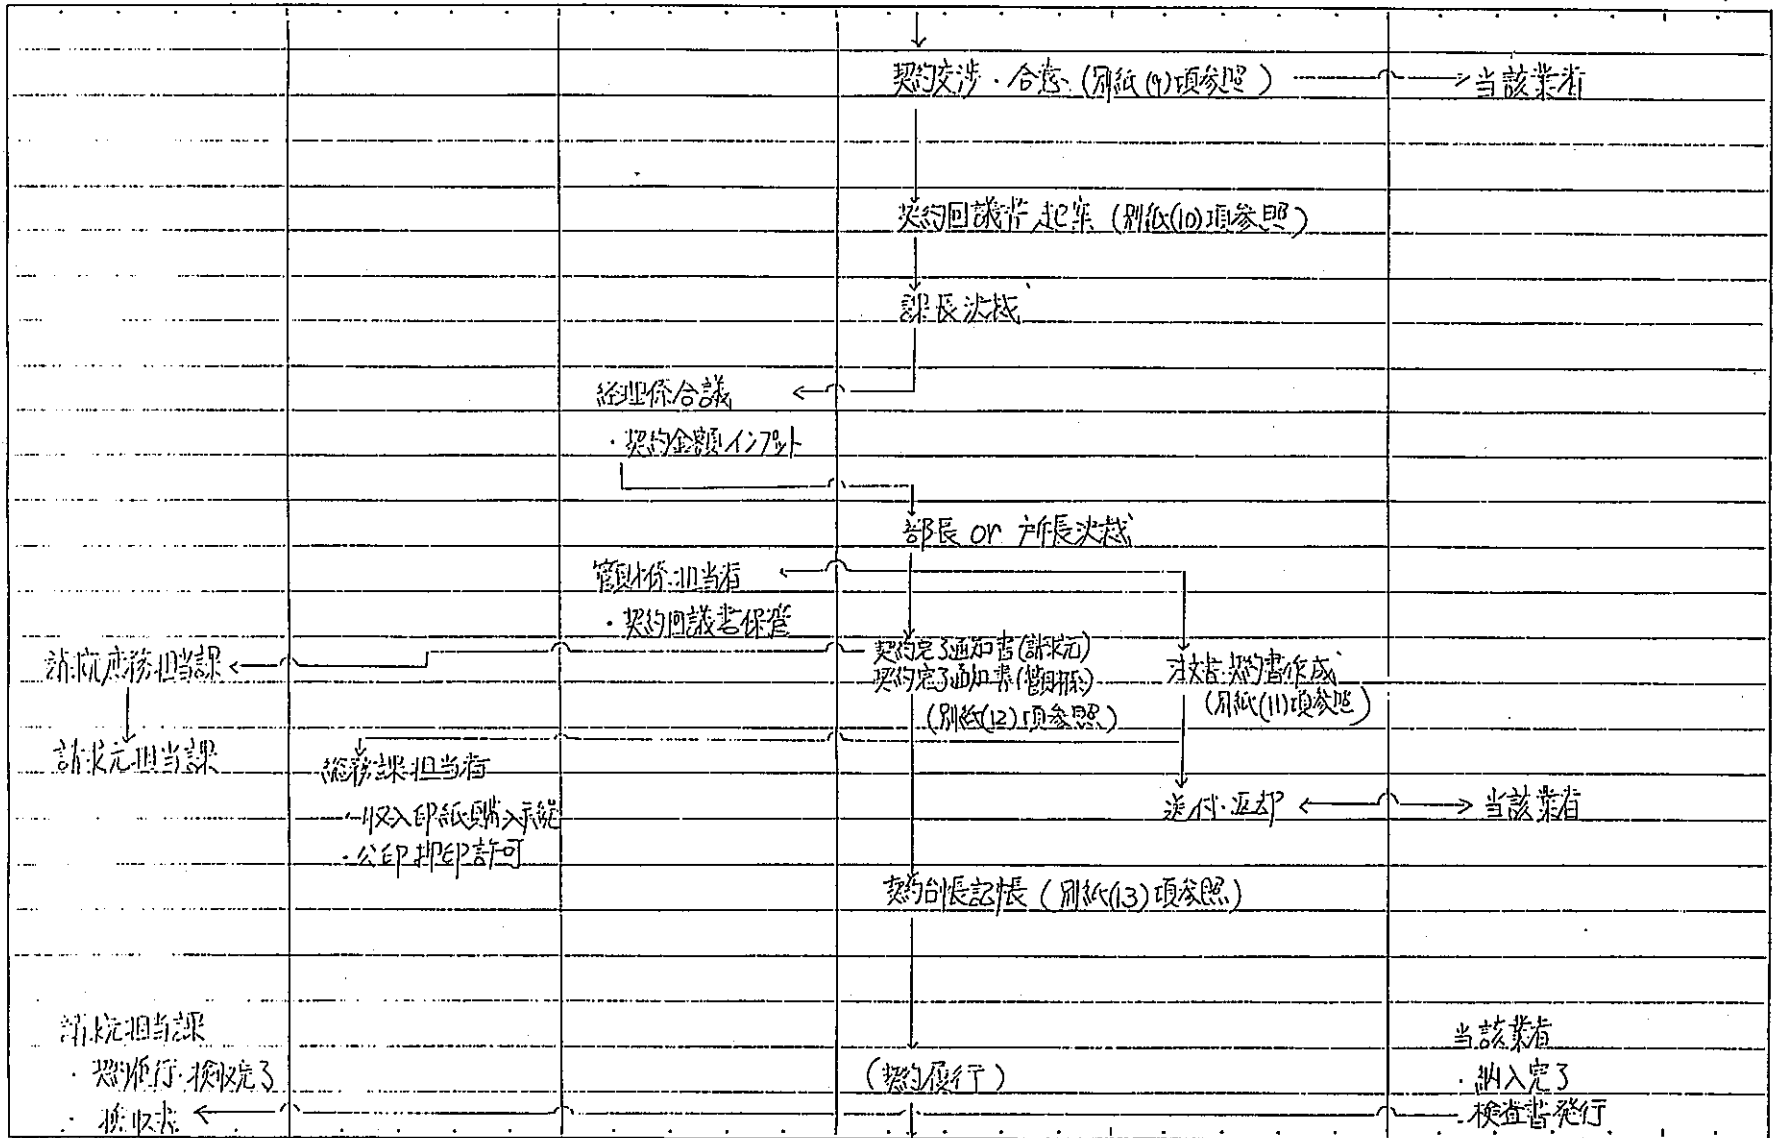 契約交渉・合意 (別紙(9)項参照)
当該業者
契約回議書起案 (別紙(10)項参照)
課長決裁
経理係合議
・契約金額インプット
部長 or 所長決裁
管財係担当者
・契約回議書保管
契約完了通知書(請求元)
契約完了通知書(管財係)
(別紙(12)項参照)
注文書・契約書作成
(別紙(11)項参照)
請求元庶務担当課
請求元担当課
総務課担当者
・収入印紙購入手続
・公印押印許可
送付・返却
当該業者
契約台帳記帳 (別紙(13)項参照)
請求元担当課
・契約履行・検収完了
・検収書
(契約履行)
当該業者
・納入完了
・検査書発行